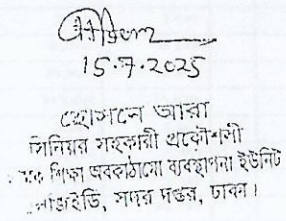 15.7.2025
হোসনে আরা
সিনিয়র সহকারী প্রকৌশলী
শিক্ষা অবকাঠামো ব্যবস্থাপনা ইউনিট
এলজিইডি, সদর দপ্তর, ঢাকা।